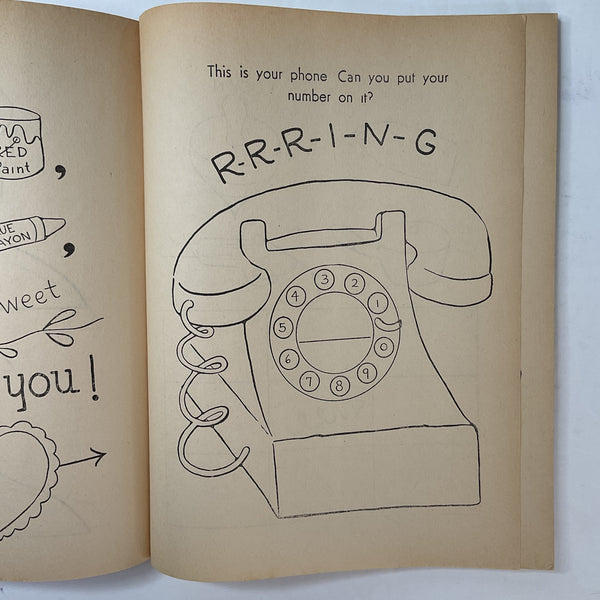 RED
Paint
,
,
weet
you!
This is your phone Can you put your
number on it?
R-R-R-I-N-G
3
2
4
1
5
6
0
7
8
9